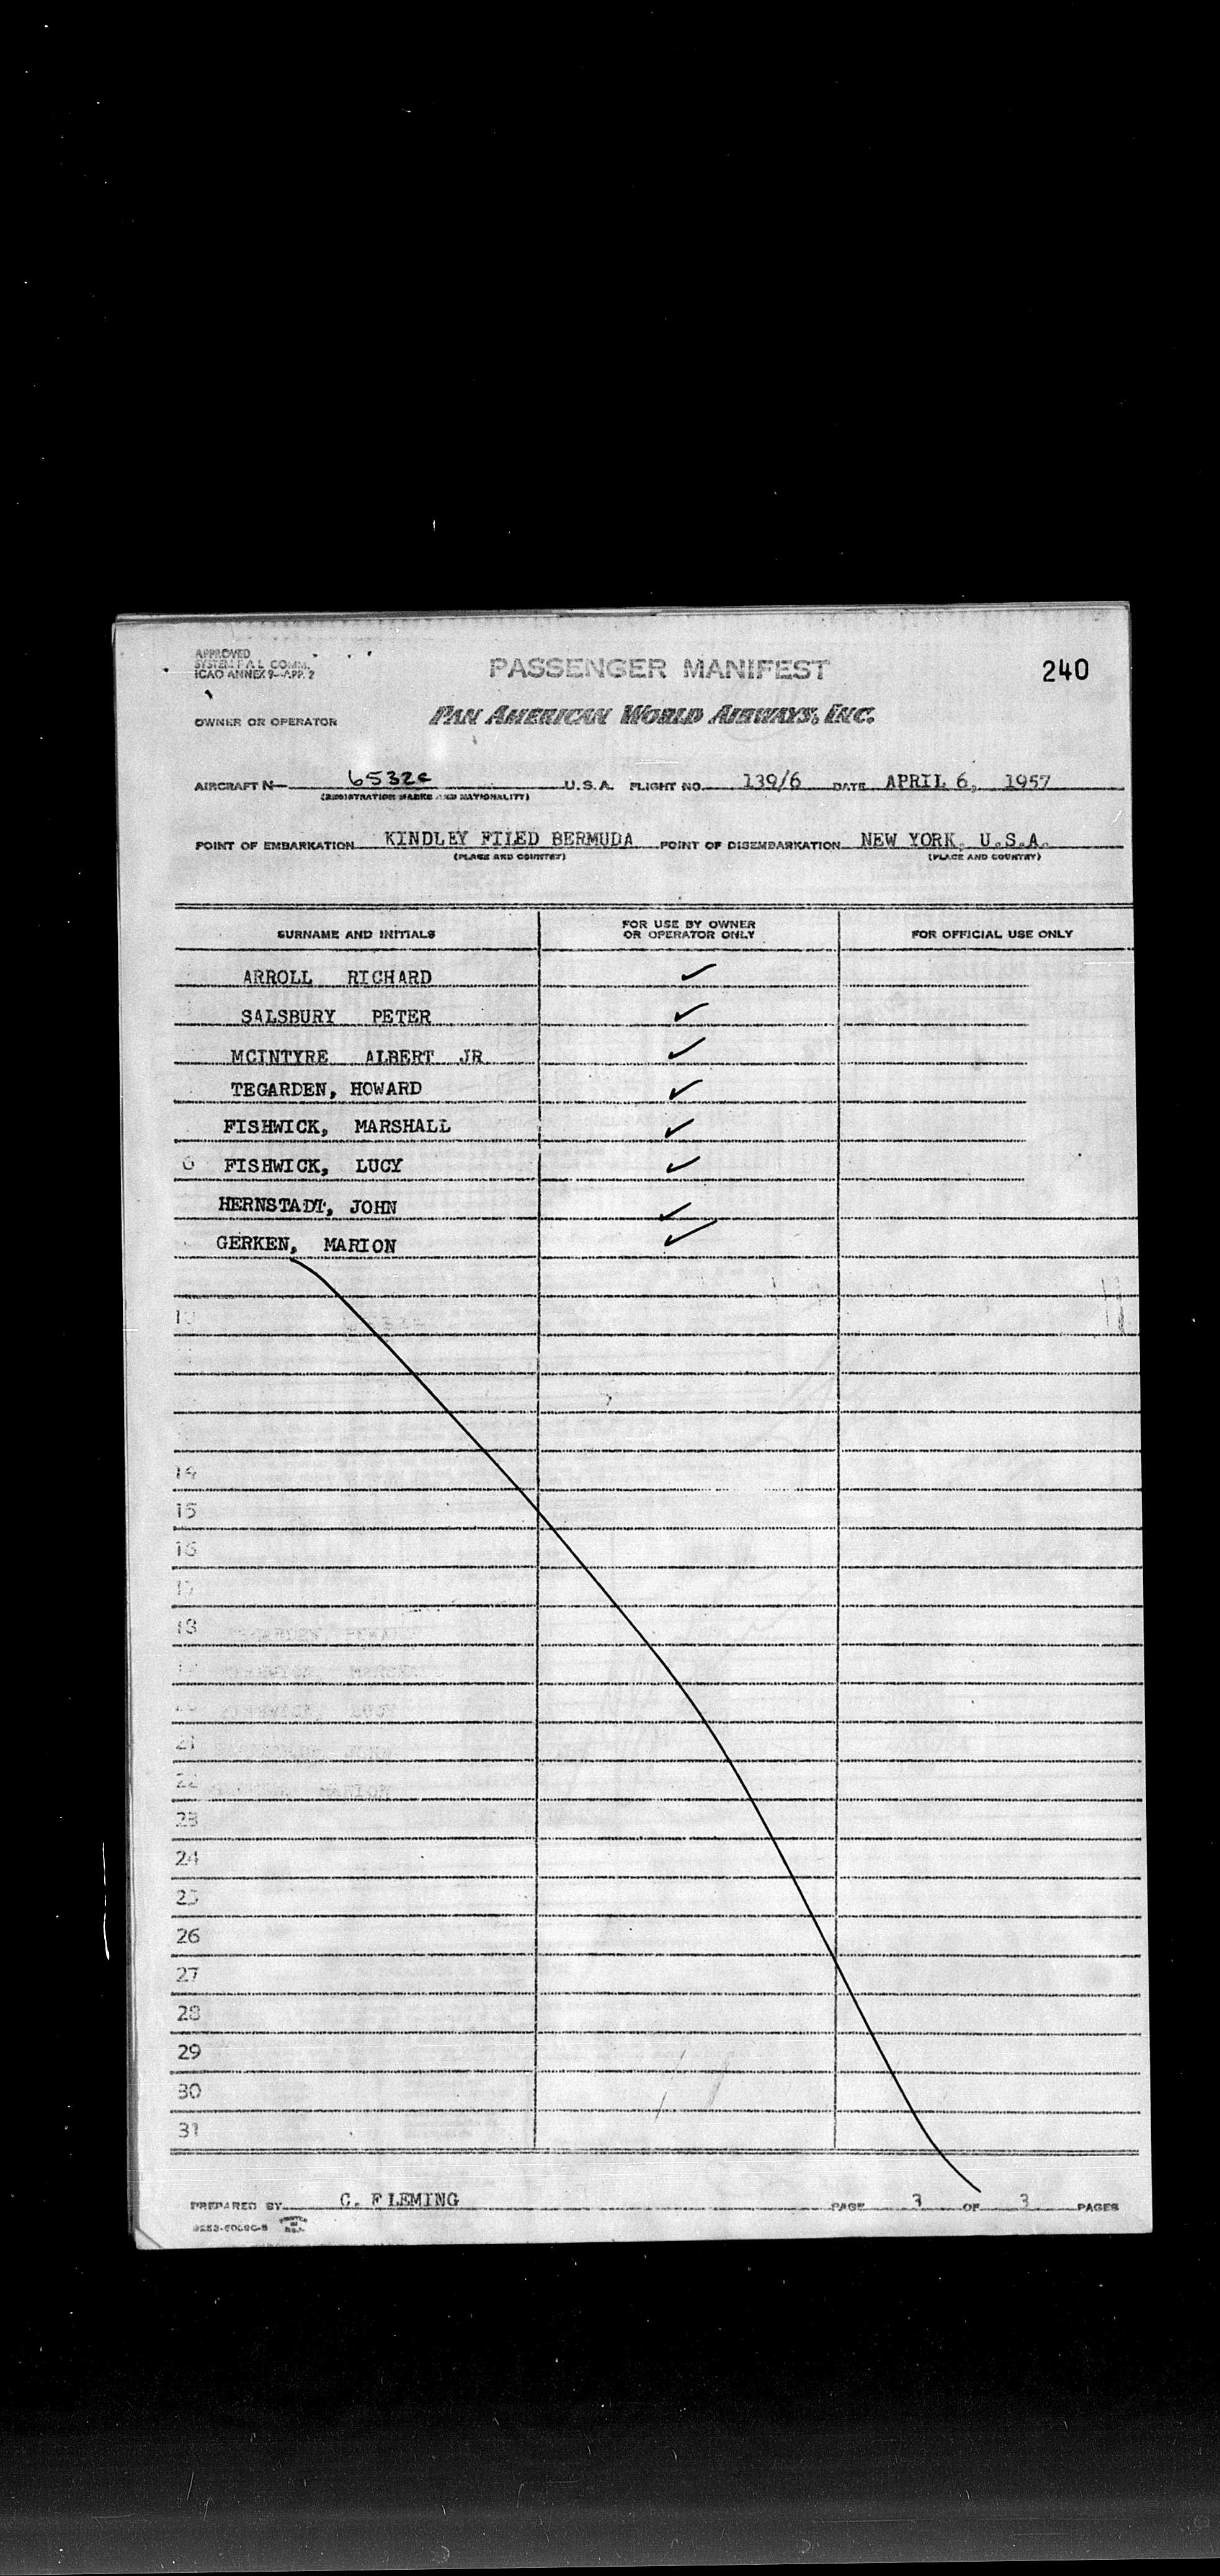 APPROVED
SYSTEM F A L COMM.
ICAO ANNEX 9-APP. 2
PASSENGER MANIFEST
240
OWNER OR OPERATOR
PAN AMERICAN WORLD AIRWAYS, INC.
AIRCRAFT N- 6532C U.S.A. FLIGHT NO. 139/6 DATE APRIL 6, 1957
(REGISTRATION MARKS AND NATIONALITY)
POINT OF EMBARKATION KINDLEY FIIED BERMUDA POINT OF DISEMBARKATION NEW YORK, U.S.A.
(PLACE AND COUNTRY) (PLACE AND COUNTRY)
SURNAME AND INITIALS FOR USE BY OWNER OR OPERATOR ONLY FOR OFFICIAL USE ONLY
ARROLL RICHARD ✓
SALSBURY PETER ✓
MCINTYRE ALBERT JR ✓
TEGARDEN, HOWARD ✓
FISHWICK, MARSHALL ✓
6 FISHWICK, LUCY ✓
HERNSTADT, JOHN ✓
GERKEN, MARION ✓
10
14
15
16
17
18
21
22
23
24
25
26
27
28
29
30
31
PREPARED BY C. FLEMING PAGE 3 OF 3 PAGES